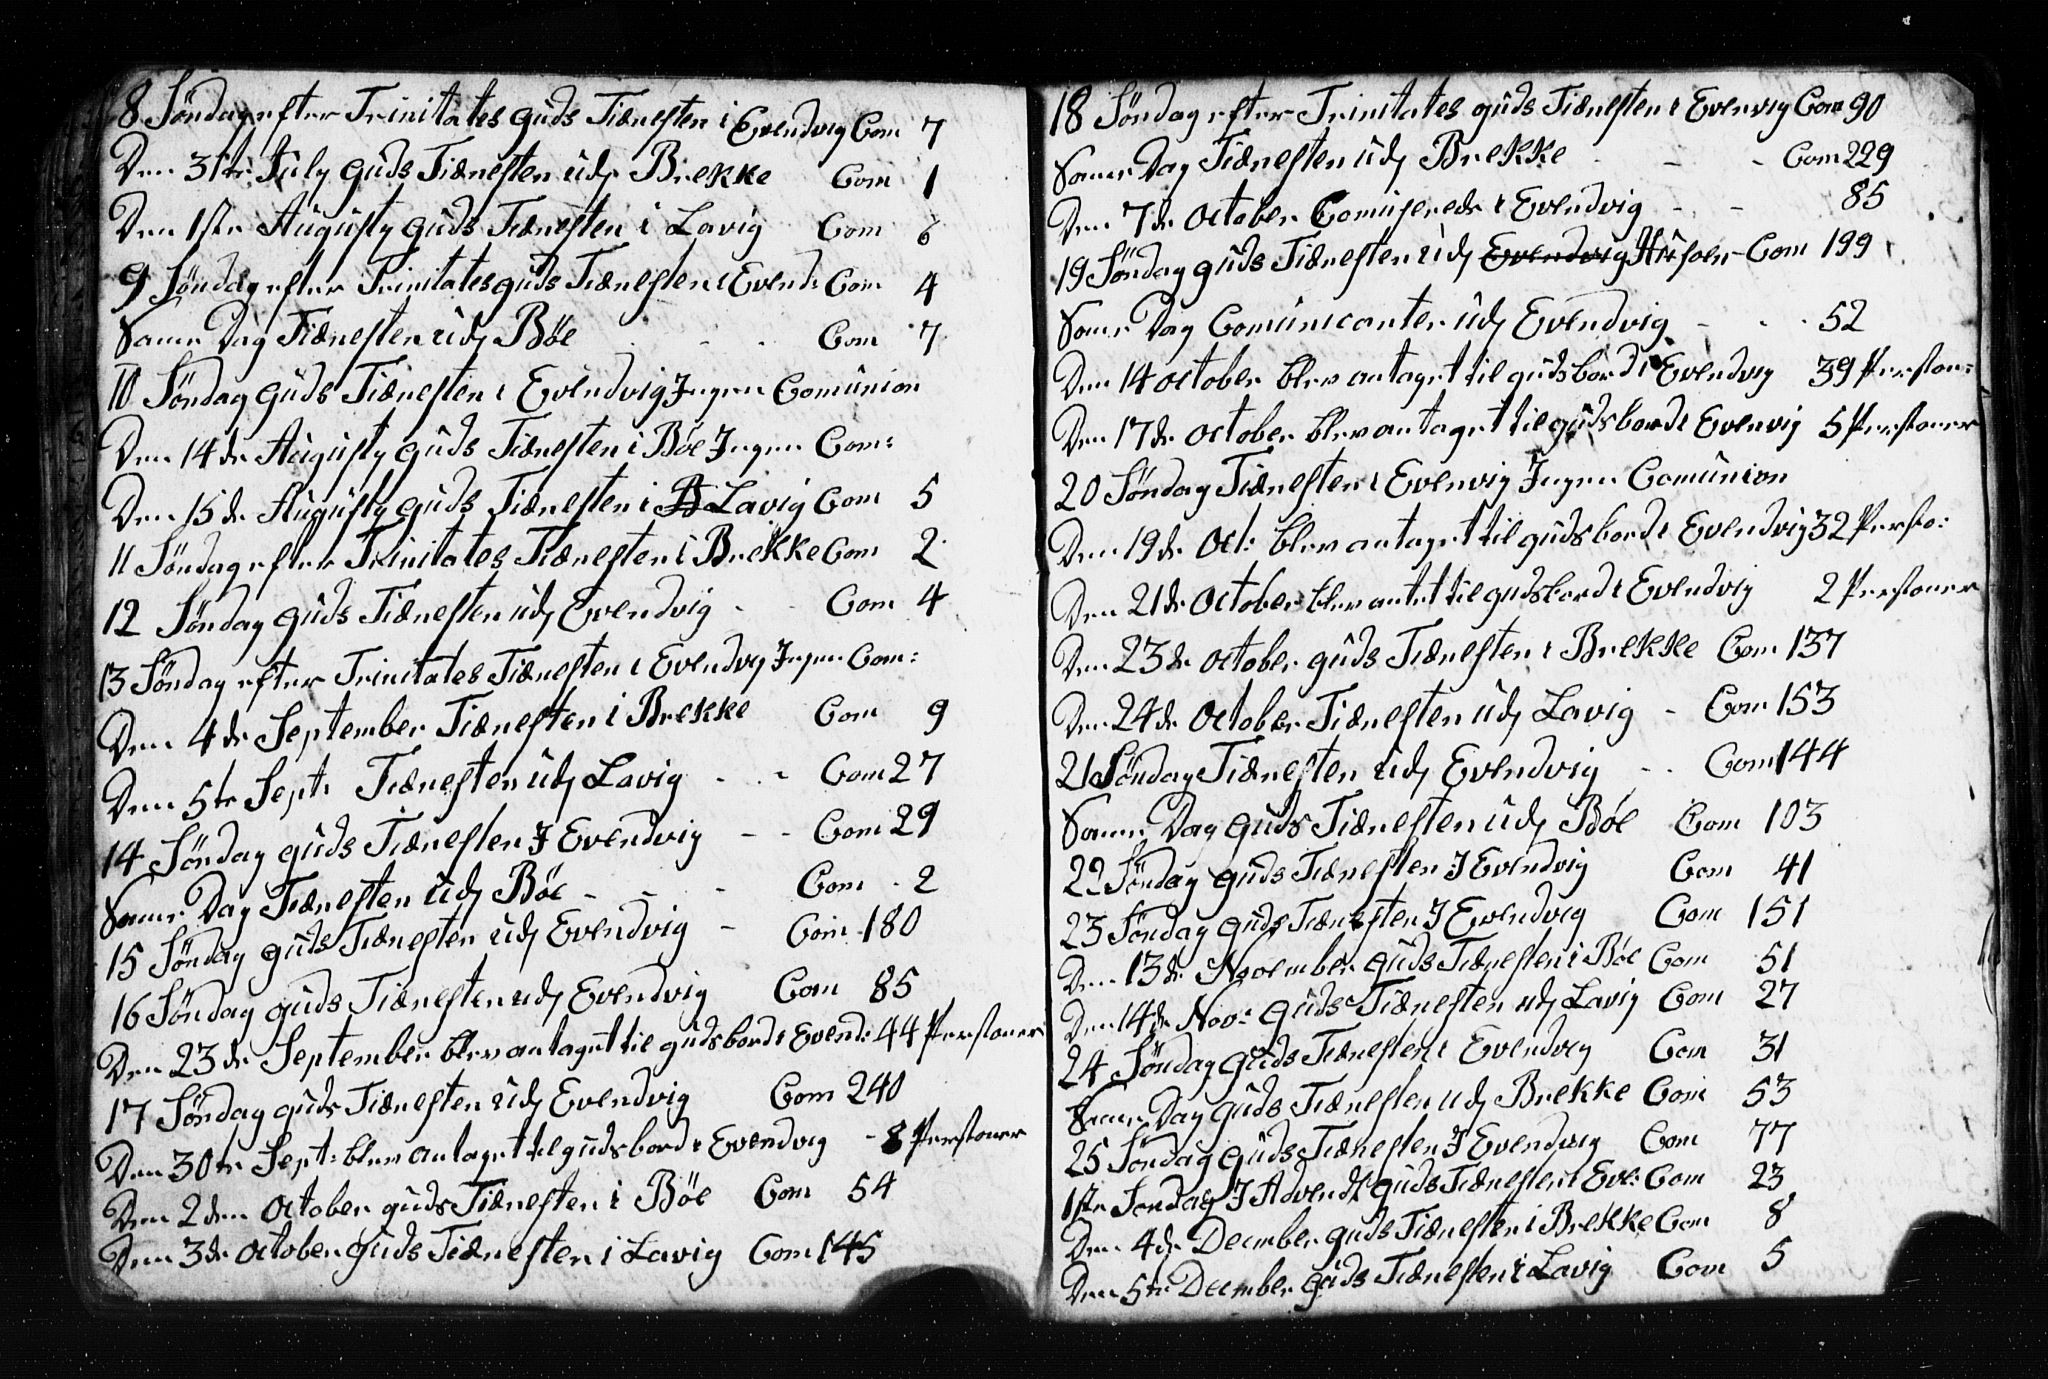 8 Søndag efter Trinitates guds Tiænesten i Evendvig Com 7
Den 31te July guds Tiænesten udj Brekke Com 1
Den 1ste Augusty guds Tiænesten i Lavig Com 6
9 Søndag efter Trinitates guds Tiænesten i Evend: Com 4
Same Dag Tiænesten udj Böe - - Com 7
10 Søndag guds Tiænesten i Evendvig Ingen Comunion
Den 14de Augusty guds Tiænesten i Böe Ingen Com:
Den 15de Augusty guds Tiænesten i B Lavig Com 5
11 Søndag efter Trinitates Tiænesten i Brekke Com 2
12 Søndag guds Tiænesten udj Evendvig - - Com 4
13 Søndag efter Trinitates Tiænesten i Evendvig Ingen Com:
Den 4de September Tiænesten i Brekke Com 9
Den 5te Sept: Tiænesten udj Lavig - - Com 27
14 Søndag guds Tiænesten I Evendvig - - Com 29
Same Dag Tiænesten udj Böe - - - Com 2
15 Søndag guds Tiænesten udj Evendvig - Com 180
16 Søndag guds Tiænesten udj Evendvig Com 85
Den 23de September blev antaget til guds bord i Evend: 44 Personer
17 Søndag guds Tiænesten udj Evendvig Com 240
Den 30te Sept: blev antaget til guds bord i Evendvig - 8 Personer
Den 2den October guds Tiænesten i Böe Com 54
Den 3de October guds Tiænesten i Lavig Com 145
18 Søndag efter Trinitates guds Tiænesten i Evenvig Com 90
Same Dag Tiænesten udj Brekke - - - Com 229
Den 7de October Comuserede i Evendvig - - 85
19 Søndag guds Tiænesten udj Evendvig Husøen Com 199
Same Dag Comunicanter udj Evendvig - - - 52
Den 14 October blev antaget til guds bord i Evendvig 39 Person:
Den 17de October blev antaget til guds bord i Evenvig 5 Personer
20 Søndag Tiænesten i Evenvig Ingen Comunion
Den 19de Oct: blev antaget til guds bord i Evendvig 32 Perso:
Den 21de October blev antet til guds bord i Evendvig 2 Personer
Den 23de October guds Tiænesten i Brekke Com 137
Den 24de October Tiænesten udj Lavig - Com 153
21 Søndag Tiænesten udj Evendvig - - Com 144
Same Dag guds Tiænesten udj Böe Com 103
22 Søndag guds Tiænesten I Evendvig Com 41
23 Søndag guds Tiænesten I Evendvig Com 151
Den 13de November guds Tiænesten i Böe Com 51
Den 14de Nov: guds Tiænesten udj Lavig Com 27
24 Søndag guds Tiænesten i Evendvig Com 31
Same Dag guds Tiænesten udj Brekke Com 53
25 Søndag guds Tiænesten I Evendvig Com 77
1ste Søndag I Advendt guds Tiænesten i Eve: Com 23
Den 4de December guds Tiænesten i Brekke Com 8
Den 5te December guds Tiænesten i Lavig Com 5